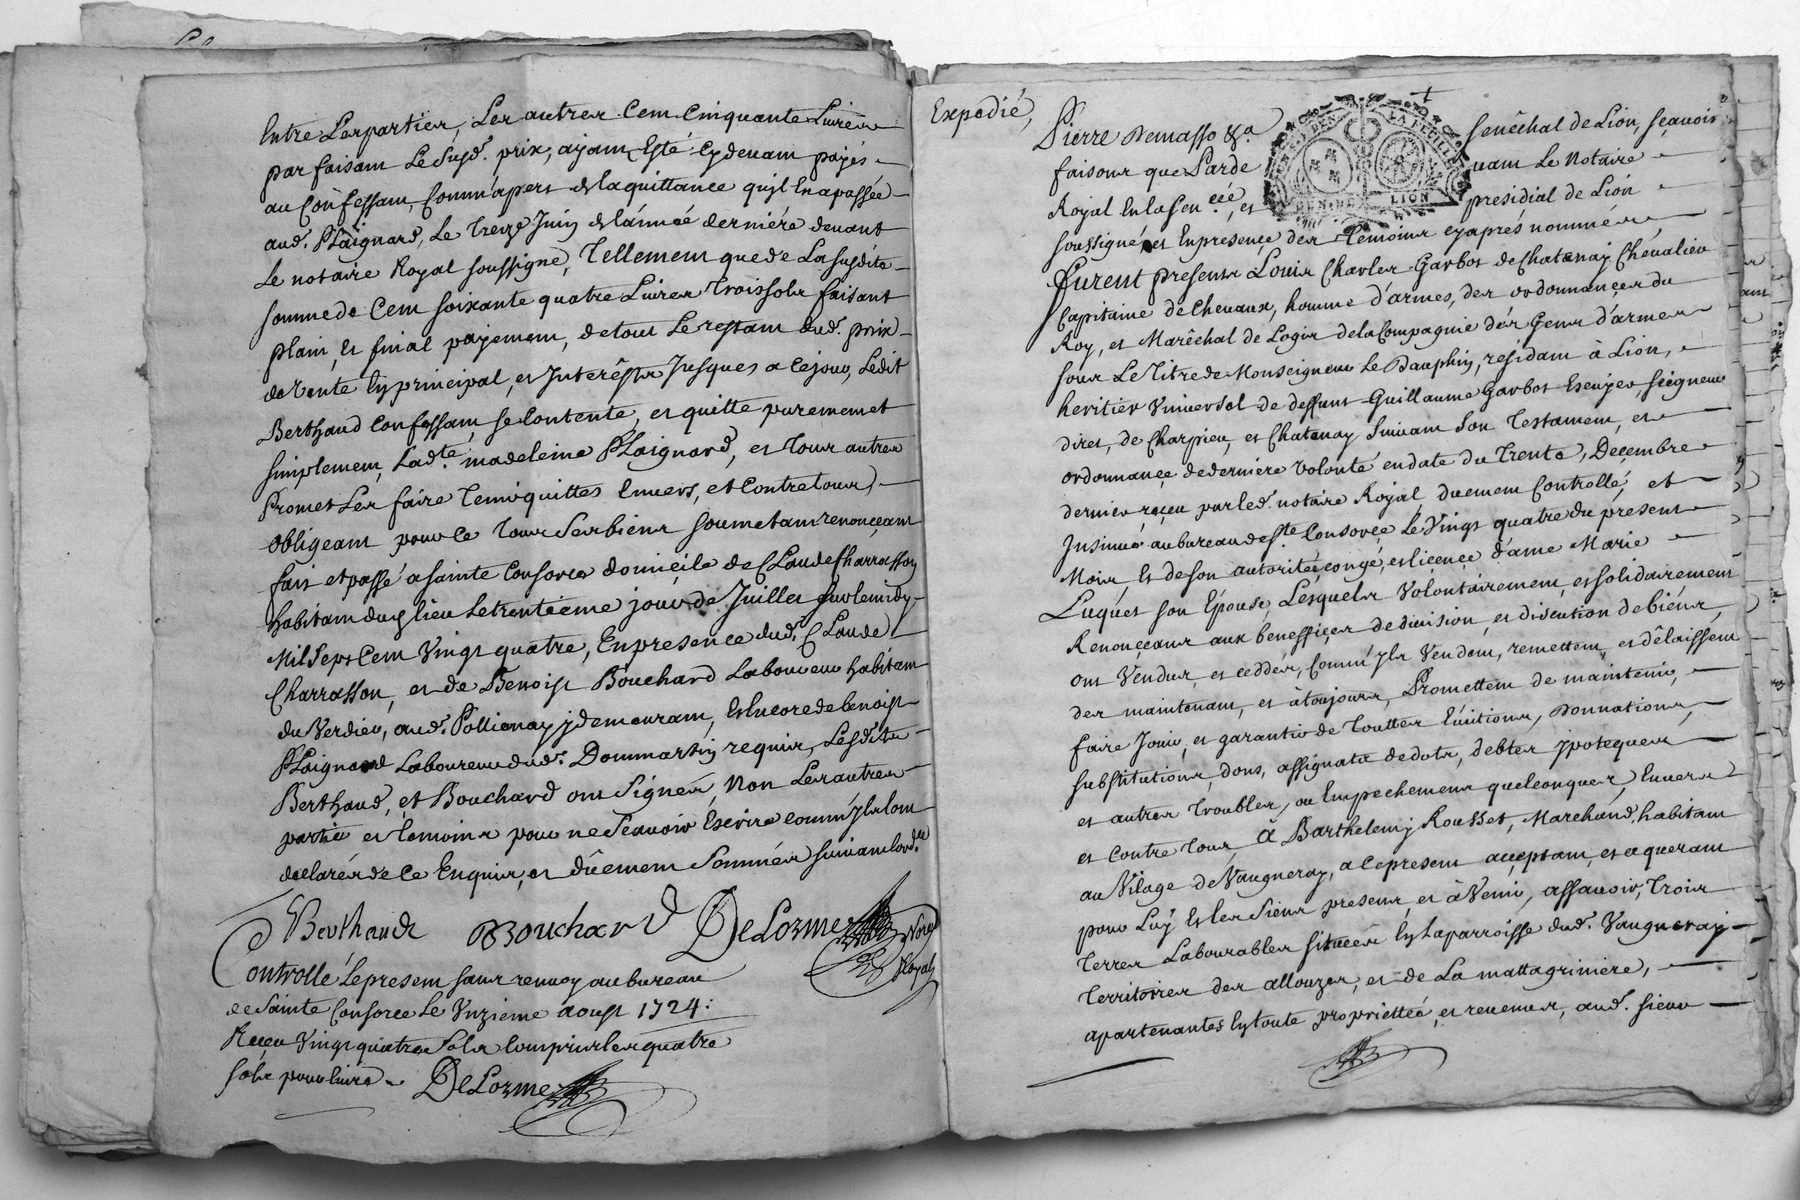 Entre Lesparties, Les autres Cent Cinquante Livres
par faisant Le susd.t prix, ajant Esté Cydevant payés
au Confessant, Comm'apert de la quittance qu'jl En a passée
aud.t Plaignard, Le Treize Juin de l'année derniére devant
Le notaire Royal soussigné, Tellement que de La susdite
somme de Cent soixante quatre Livres Trois sols faisant
plain, et final payement, de tout Le restant dud.t prix
de vente En principal, et Jnterêsts Jusques a Cejour, Ledit
Berthaud Confessant, se Contente, et quitte purement et
simplement, Lad.te madeleine Plaignard, et Tous autres
Promet Les faire Tenir quittes Envers, et Contre tous,
obligeant pour Ce Tous ses biens soumetant renonçeant
fait et passé a sainte Consorce domiçile de Claude Charrasson
habitant dud lieu Le trentieme jour de Juillet
Mil Sept Cent Vingt quatre, En presence dud.t Claude
Charrasson, et de Benoist Bouchard Laboureur habitant
du Verdier, aud.t Pollionay j demeurant, Et Encore de benoist
Plaignard Laboureur dud.t Dommartin requis, Lesdits
Berthaud, et Bouchard ont Signés, Non Les autres
partie et temoins pour ne Scavoir Escrire comm'jls lont
declarés de Ce Enquis, et dûement Sommés suivant lord.ce
Berthaud Bouchard DeLorme Not.re Royal
Controllé Le present sans renvoy au bureau
de Sainte Consorce Le Unzieme aoust 1724:
Reçeu Vingt quatre Sols Compris les quatre
sols pour livre DeLorme
Expedié,
Pierre Demasso &.a Senêchal de Lion, sçavoir
faisons que Parde vant Le Notaire
Royal En la Sen.ceé, et presidial de Lion
LION
soussigné, et En presençe des Temoins cyaprés nommés
Furent presents Louis Charles Garbot de Chatenay Chevalier
Capitaine de Chevaux, homme d'armes, des ordonnançes du
Roy, et Marêchal de Logis de la Compagnie dés Gens d'armes
sous Le Titre de Monseigneur Le Dauphin, residant à Lion,
heritier Universel de deffunt Guillaume Garbot Escuyer, seigneur
diret, de Charpieu, et Chatenay Suivant Son Testament, et
ordonnançe de derniere Volonté en date du Trente, Deçembre
dernier reçeu par led.t notaire Royal duement Controllé, et
Jnsinué au bureau de S.te Consorçe Le Vingt quatre du present
Mois, Et de son autorité, congé, et licençe d'ame Marie
Luquet son Epouse, Lesquels Volontairement, et solidairement
Renonçeant aux beneffiçes de division, et discution de biéns,
ont Vendus, et ceddés, Comm'jls Vendent, remettent, et dêlaissent
des maintenant, et à toujours, Promettent de maintenir,
faire Jouir, et garantir de Touttes Evitions, Donnations,
substitutions, dons, assignats de dots, debtes jpoteques
et autres Troubles, ou Empechements quelconques, Envers
et Contre tous A Barthelemj Rousset, Marchand, habitant
au Vilage de Vaugneray, a cepresent acçeptant, et aquerant
pour Luy Et les Siens presents, et à Venir, assavoir, Trois
Terres Labourables situées En La parroisse dud.t Vaugneray
Territoires des allouzes, et de La mattagriniere,
apartenantes En toute proprietteé, et revenus, aud.t sieur